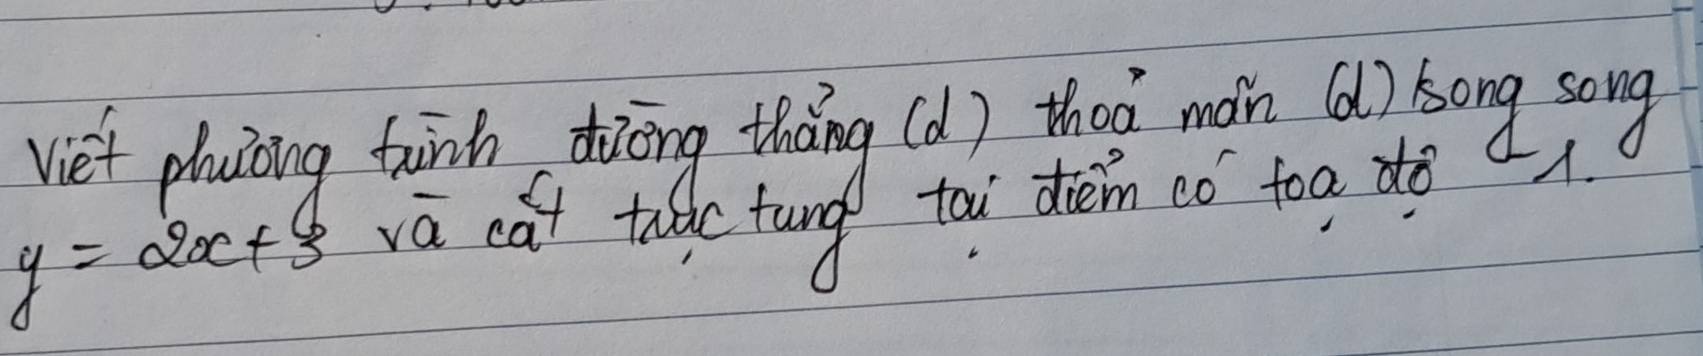 Viết phương trình đường thẳng (d) thoả mãn (d) song song
y = 2x + 3 và cắt trục tung tại điểm có toạ độ -1.